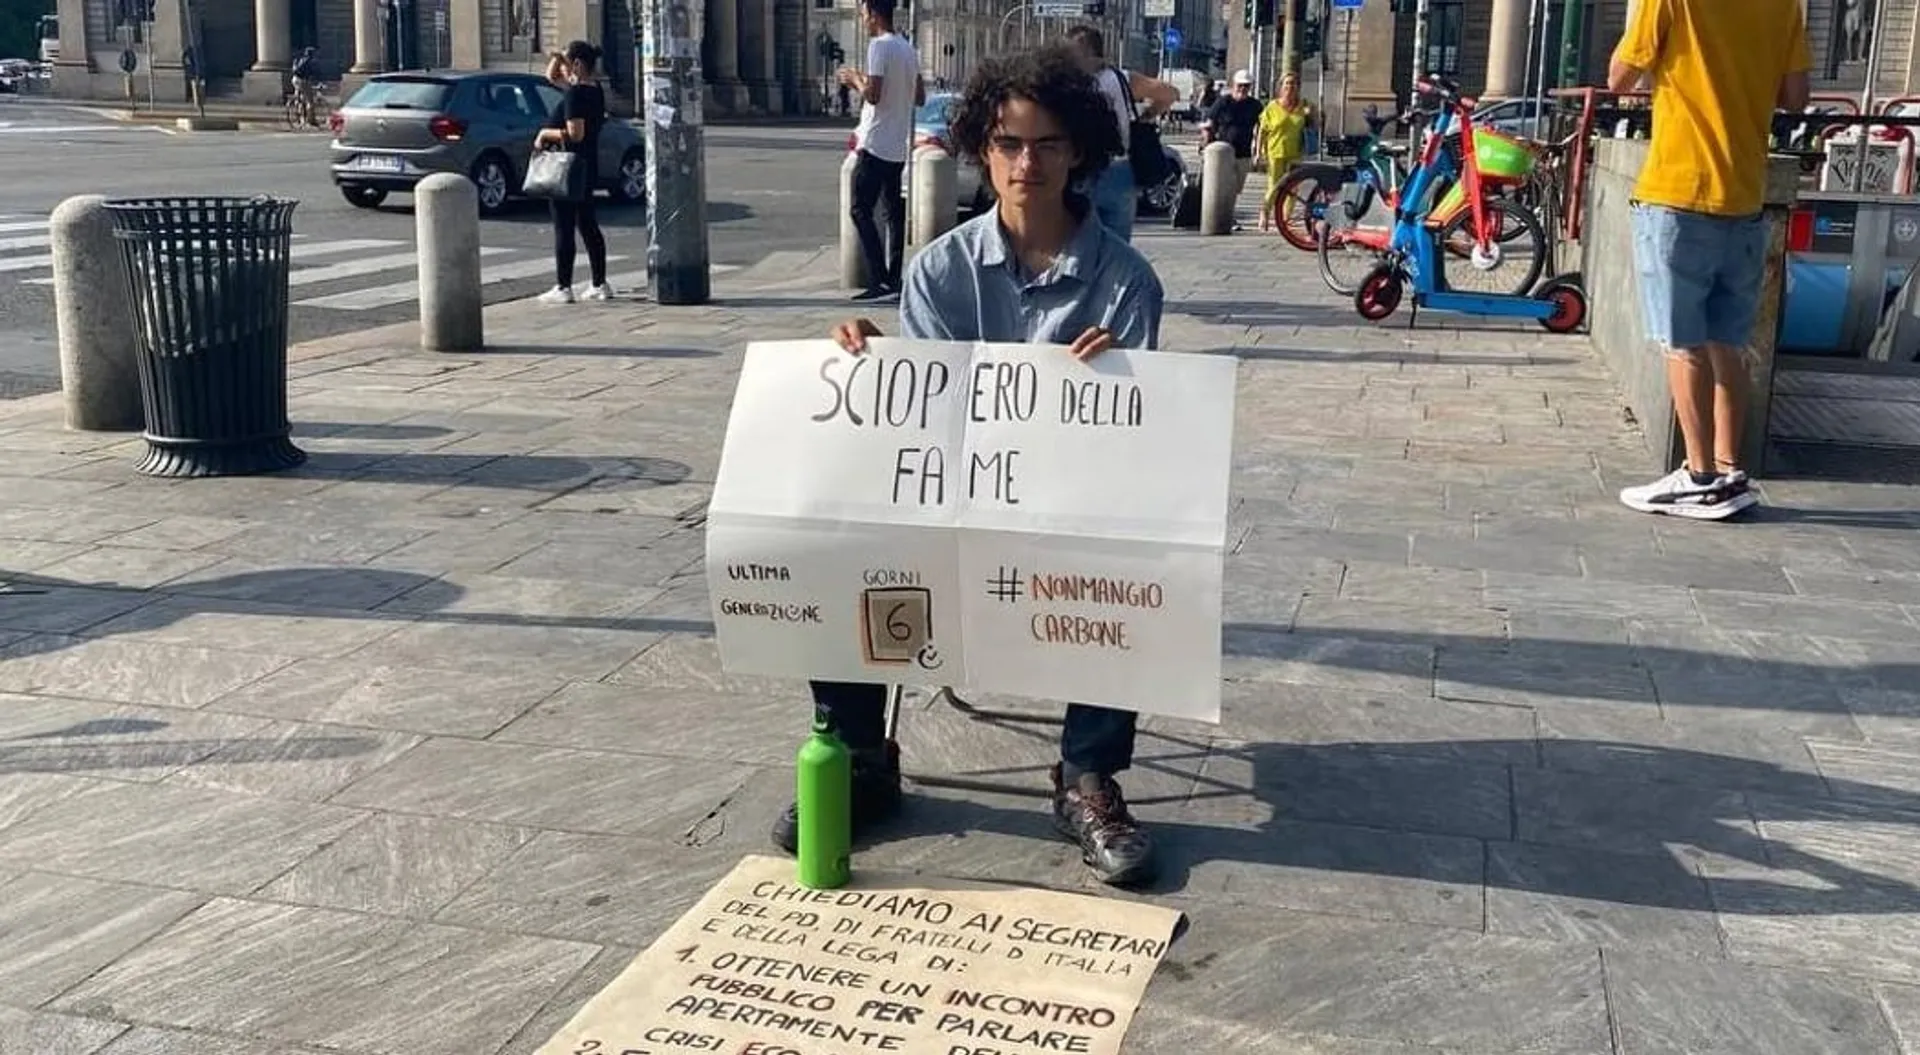 SCIOPERO DELLA
FAME
ULTIMA
GENERAZIONE
GORNI
6
# NONMANGIO
CARBONE
CHIEDIAMO AI SEGRETARI
DEL PD, DI FRATELLI D ITALIA
E DELLA LEGA DI:
1. OTTENERE UN INCONTRO
PUBBLICO PER PARLARE
APERTAMENTE
CRISI
2.